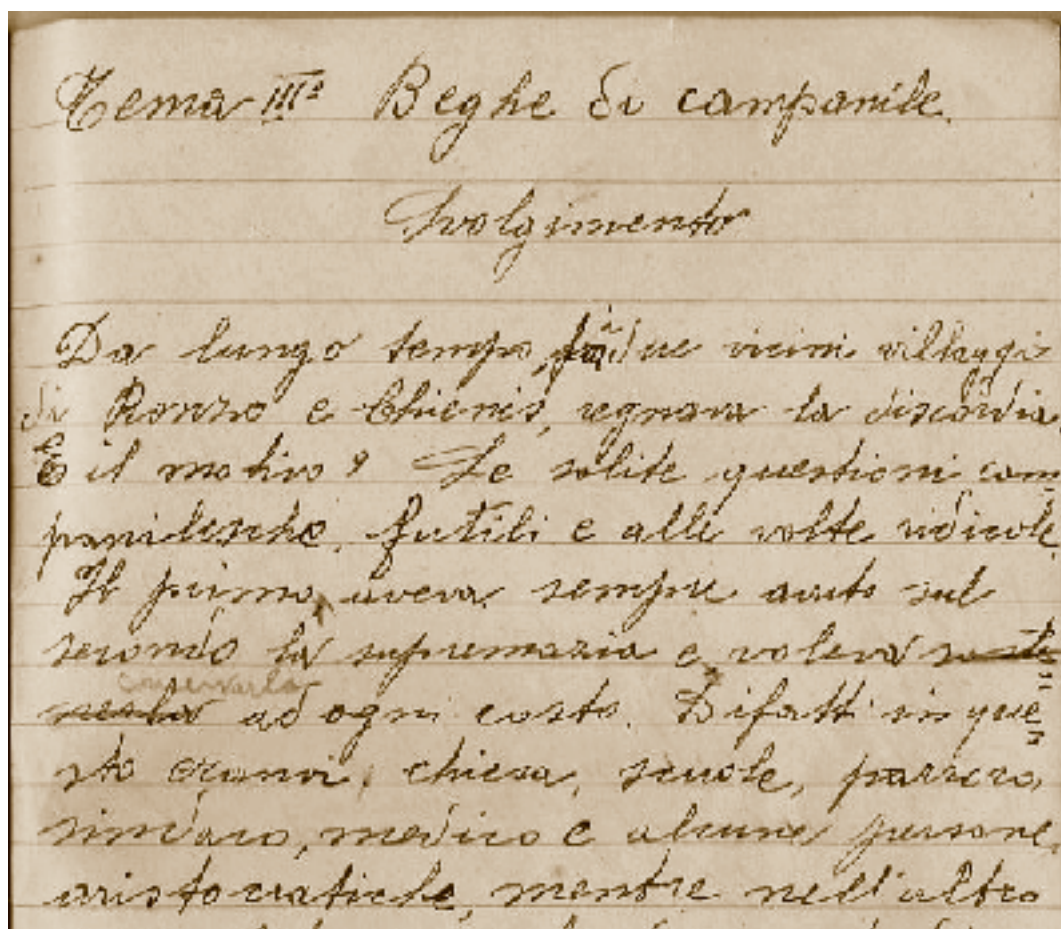 Tema IIIª Beghe di campanile.
Svolgimento
Da lungo tempo, fra i due vicini villaggi
di Ronzo e Chienis, regnava la discordia.
E il motivo? Le solite questioni cam=
panilesche, futili e alle volte ridicole.
Il primo, aveva sempre avuto sul
secondo la supremazia e voleva soste=
nerla conservarla ad ogni costo. Difatti in que=
sto eranvi, chiesa, scuole, parroco,
sindaco, medico e alcune persone
aristocratiche, mentre nell'altro